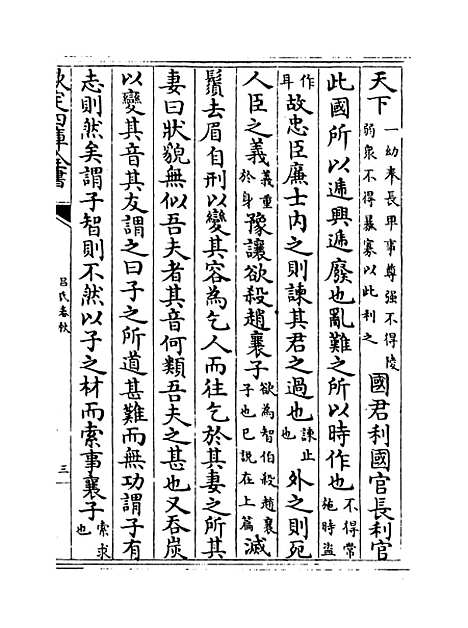 天下一幼奉長卑事尊强不得陵弱衆不得暴寡以此利之國君利國官長利官
此國所以遞興遞廢也亂難之所以時作也不得常施時盜
作耳故忠臣廉士内之則諫其君之過也諫止也外之則死
人臣之義義重於身豫讓欲殺趙襄子欲為智伯殺趙襄子也已說在上篇滅
鬚去眉自刑以變其容為乞人而往乞於其妻之所其
妻曰狀貌無似吾夫者其音何類吾夫之甚也又吞炭
以變其音其友謂之曰子之所道甚難而無功謂子有
志則然矣謂子智則不然以子之材而索事襄子索求也
欽定四庫全書
吕氏春秋
三